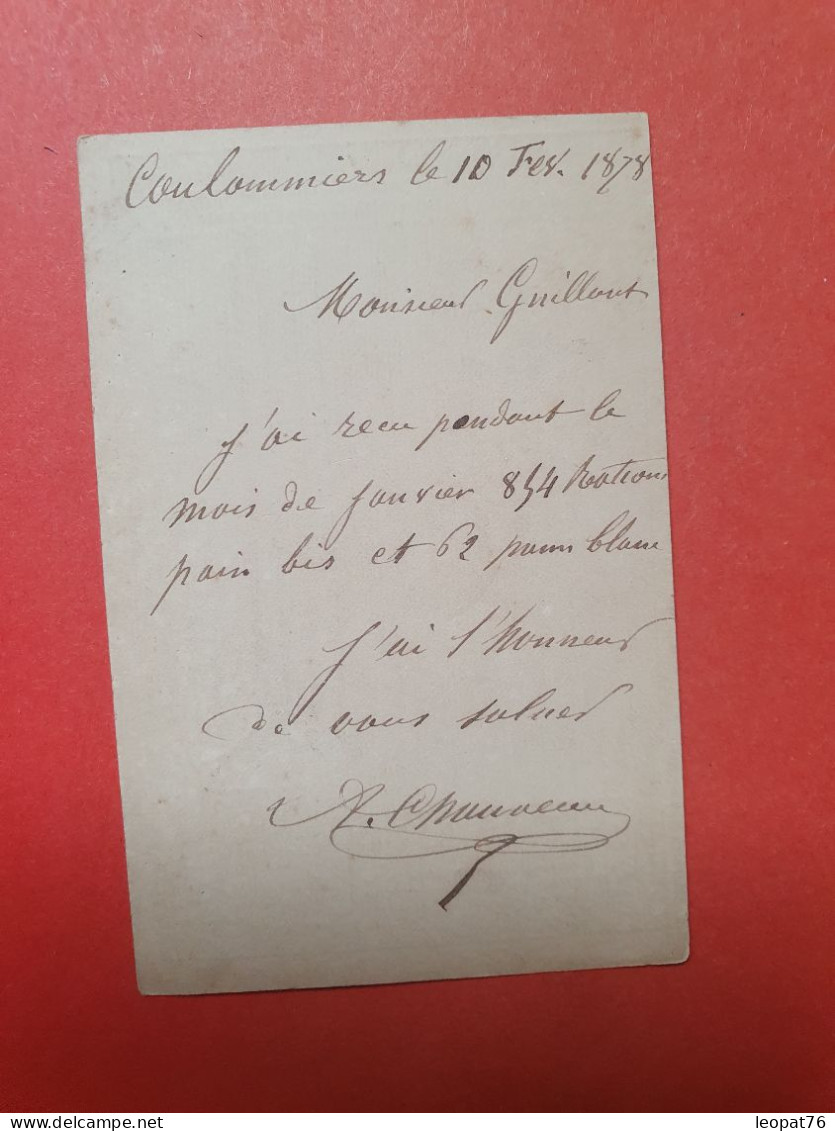 Coulommiers le 10 Fev. 1878
Monsieur Guillout
J'ai recu pendant le
mois de Janvier 854 Rations
pain bis et 62 pains blanc
J'ai l'honneur
de vous saluer
A. Chauveau
delcampe.net
leopat76